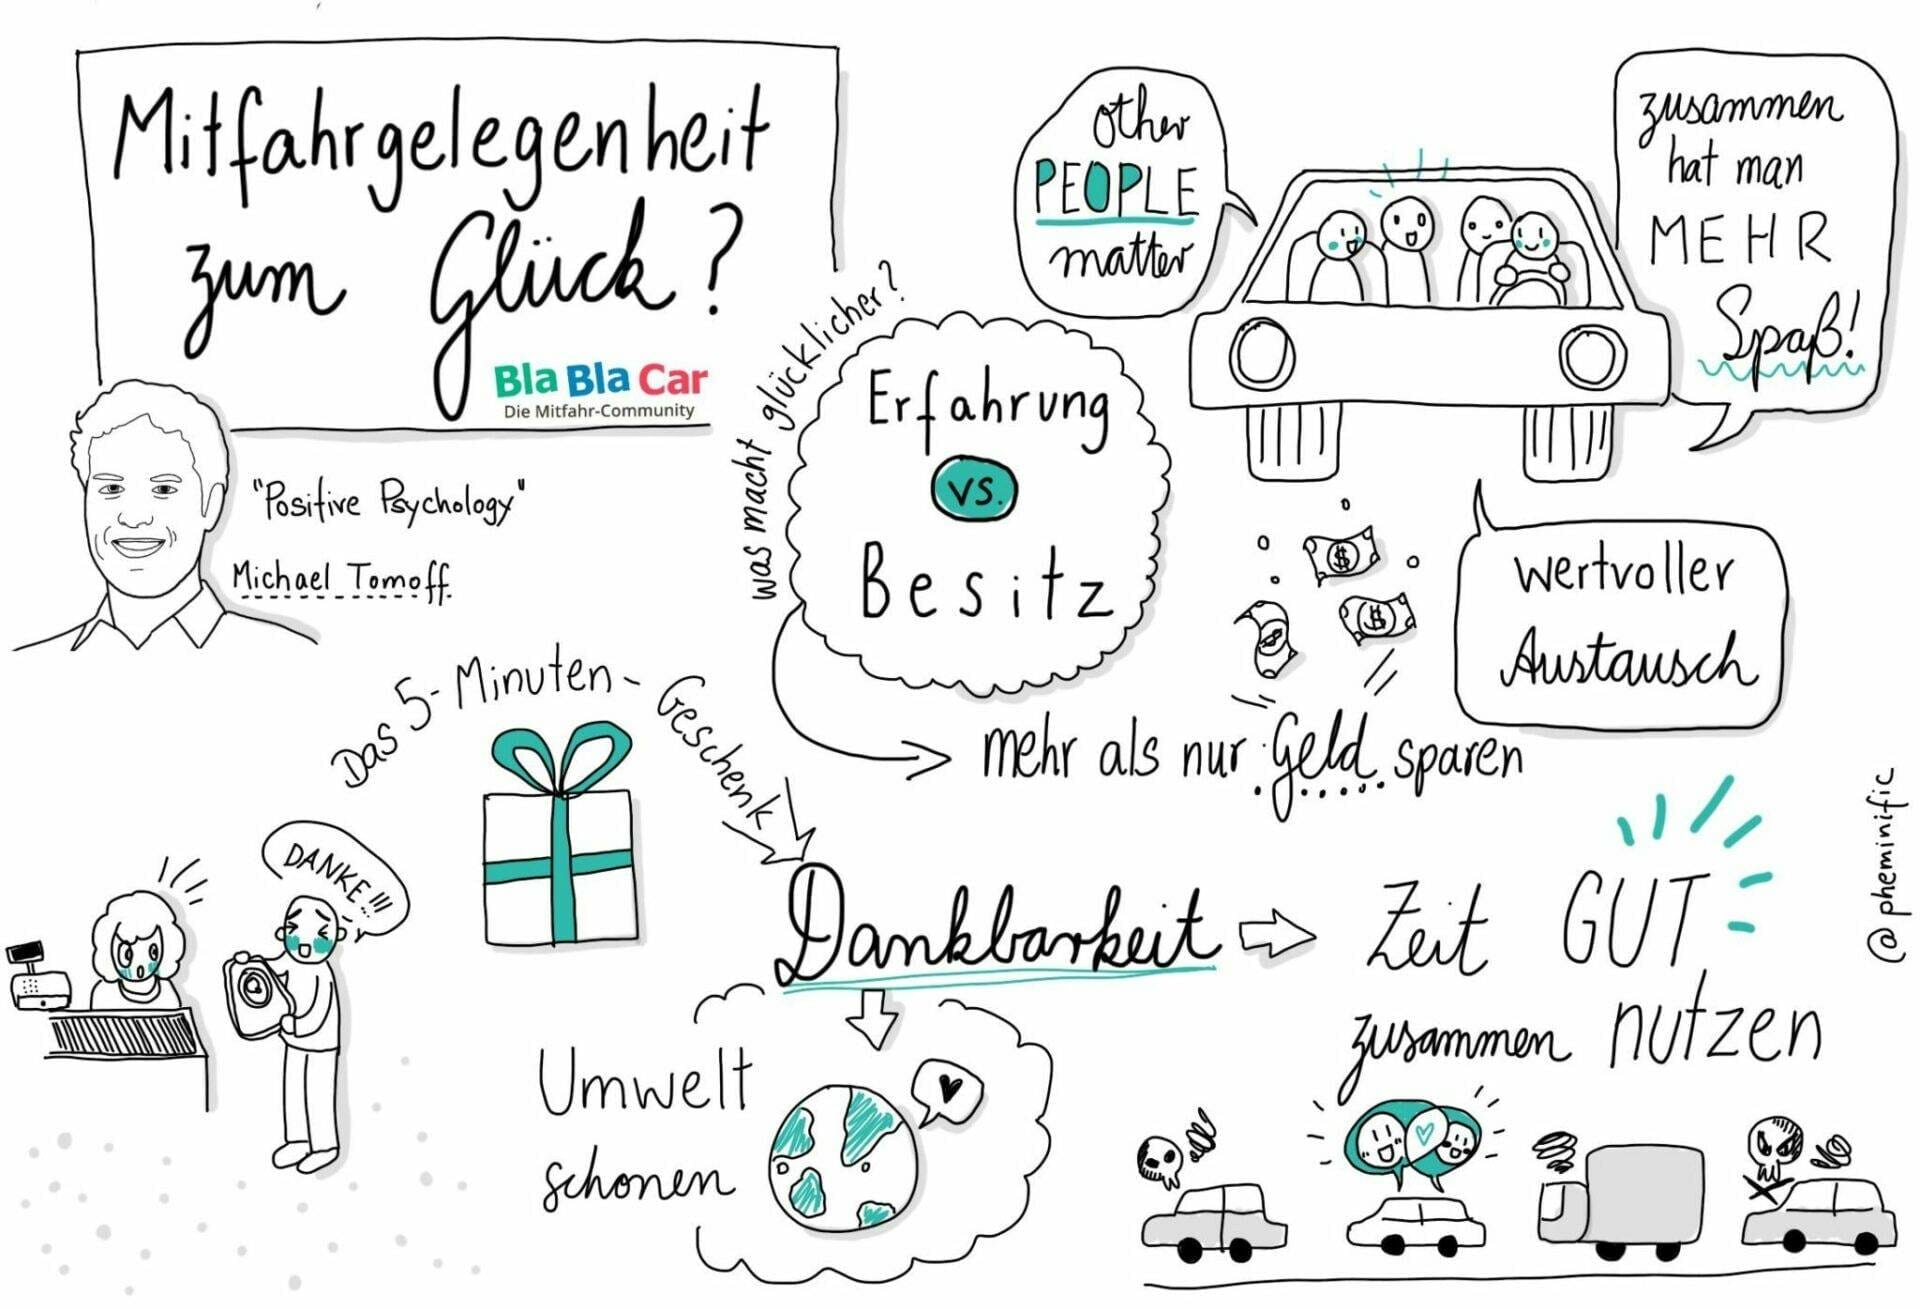 Mitfahrgelegenheit
zum Glück?
BlaBlaCar
Die Mitfahr-Community
"Positive Psychology"
Michael Tomoff
was macht glücklicher?
Erfahrung
vs.
Besitz
other
PEOPLE
matter
zusammen
hat man
MEHR
Spaß!
wertvoller
Austausch
$
$
$
mehr als nur Geld sparen
Das 5-Minuten-Geschenk
DANKE!!!
Dankbarkeit
Zeit GUT
zusammen nutzen
Umwelt
schonen
@pheminific